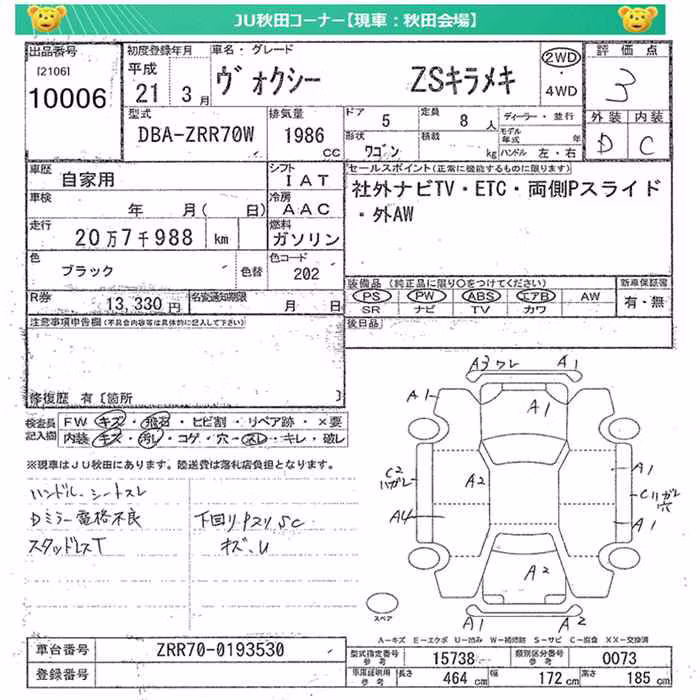 JU秋田コーナー【現車：秋田会場】
出品番号
[2106]
10006
初度登録年月
平成
21年 3月
車名・グレード
ヴォクシー ZSキラメキ
2WD
・
4WD
評価点
3
外装 内装
D C
型式
DBA-ZRR70W
排気量
1986
CC
ドア
5
定員
8人
形状
ワゴン
積載
kg
ディーラー・並行
モデル年式 年
ハンドル 左・右
車歴
自家用
シフト
IAT
車検
年 月( 日)
冷房
AAC
走行
20万7千988 km
燃料
ガソリン
色
ブラック
色替
色コード
202
R券
13,330円
名変通知期限
月 日
セールスポイント(正常に機能するものに限ります)
社外ナビTV・ETC・両側Pスライド
・外AW
装備品 (純正品に限り○をつけてください)
PS PW ABS エアB AW
SR ナビ TV カワ
新車保証書
有・無
後日品
注意事項申告欄(不具合内容等は具体的に記入して下さい)
修復歴 有〔箇所 〕
検査員記入欄
FW キズ・飛石・ヒビ割・リペア跡・×要
内装 キズ・汚レ・コゲ・穴・スレ・キレ・破レ
※現車はJU秋田にあります。陸送費は落札店負担となります。
ハンドル、シートスレ
Dミラー電格不良
スタッドレスT
下回りサビSC
キズ、U
A3ワレ A1
A1
A1
C2
ハガレ
A2
A4
A1
Cハガレ
穴
A1
A2
A1 A2
スペア
A-キズ E-エクボ U-凹み W-補修跡 S-サビ C-腐食 XX-交換済
車台番号
ZRR70-0193530
登録番号
型式指定番号
参考
15738
類別区分番号
参考
0073
車庫証明用
参考
長さ
464 cm
幅
172 cm
高さ
185 cm